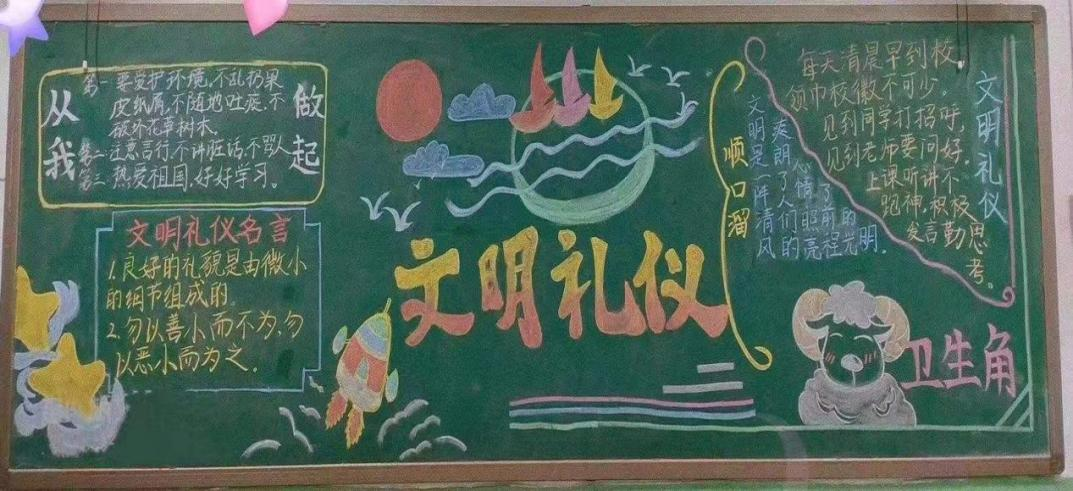 从我
做起
第一 要爱护环境,不乱扔果
皮纸屑,不随地吐痰,不
破坏花草树木.
第二 注意言行,不讲脏话,不骂人
第三 热爱祖国,好好学习。
文明礼仪名言
1.良好的礼貌是由微小
的细节组成的。
2.勿以善小而不为,勿
以恶小而为之.
文明礼仪
顺口溜
文明是一阵清风
爽朗了人们的
心情昭亮
了前程
的光明.
文明礼仪
每天清晨早到校,
领巾校徽不可少.
见到同学打招呼,
见到老师要问好.
上课听讲不
跑神,积极
发言勤思
考。
卫生角